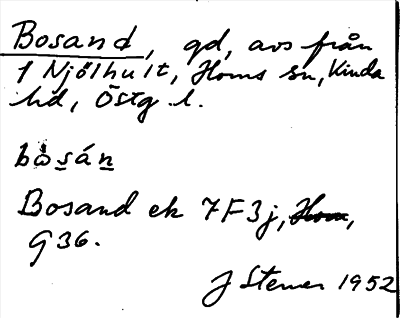 Bosand, gd, avs från
1 Njölhult, Horns sn, Kinda
hd, Östg l.
bo̊sán
Bosand ek 7F3j, Horn,
G36.
J Stener 1952